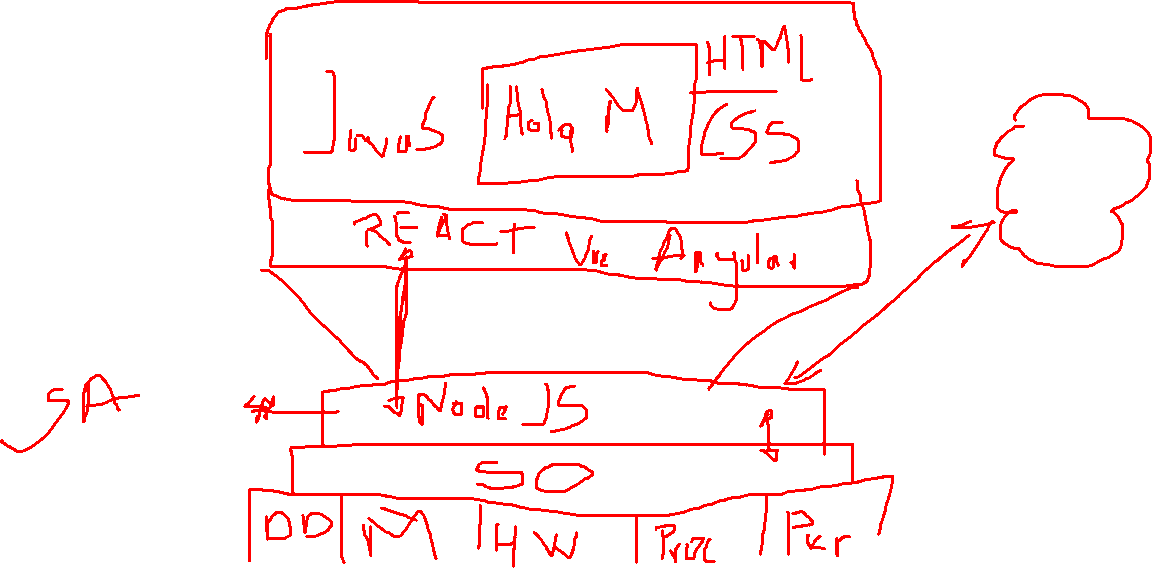 HTML
JavaS Hola M CSS
REACT Vue Angular
SA
Node JS
SO
DD M HW Proc Per